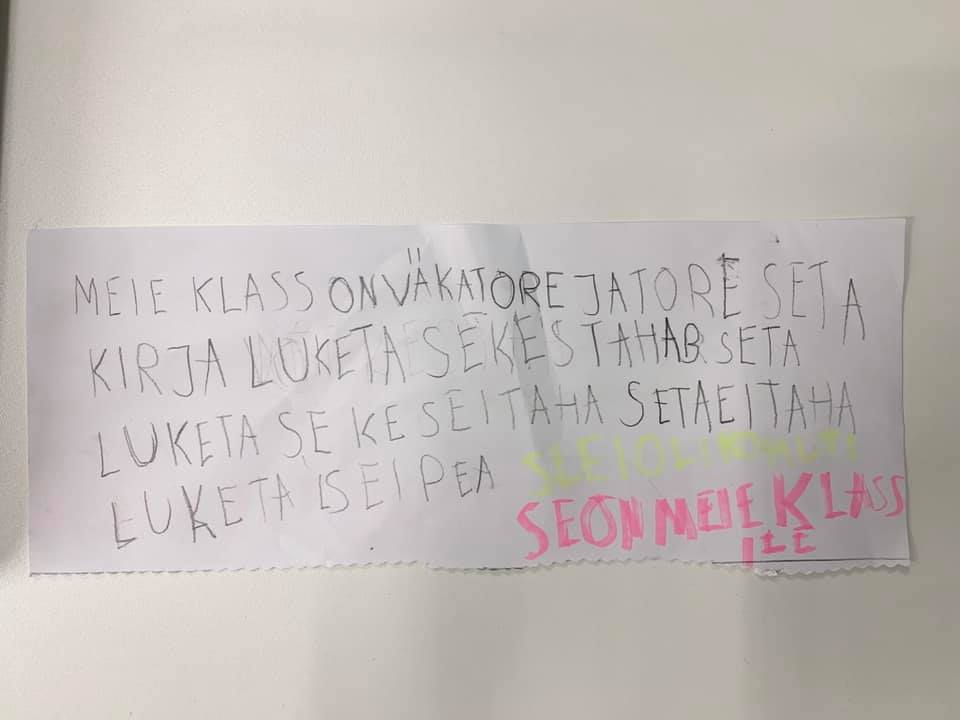 MEIE KLASS ONVÄKATORE JATORE SETA
KIRJA LUKETA SEKES TAHAB SETA
LUKETA SE KE SEITAHA SETAEITAHA
LUKETA SEIPEA
SEONMEIEKLASS
ILE